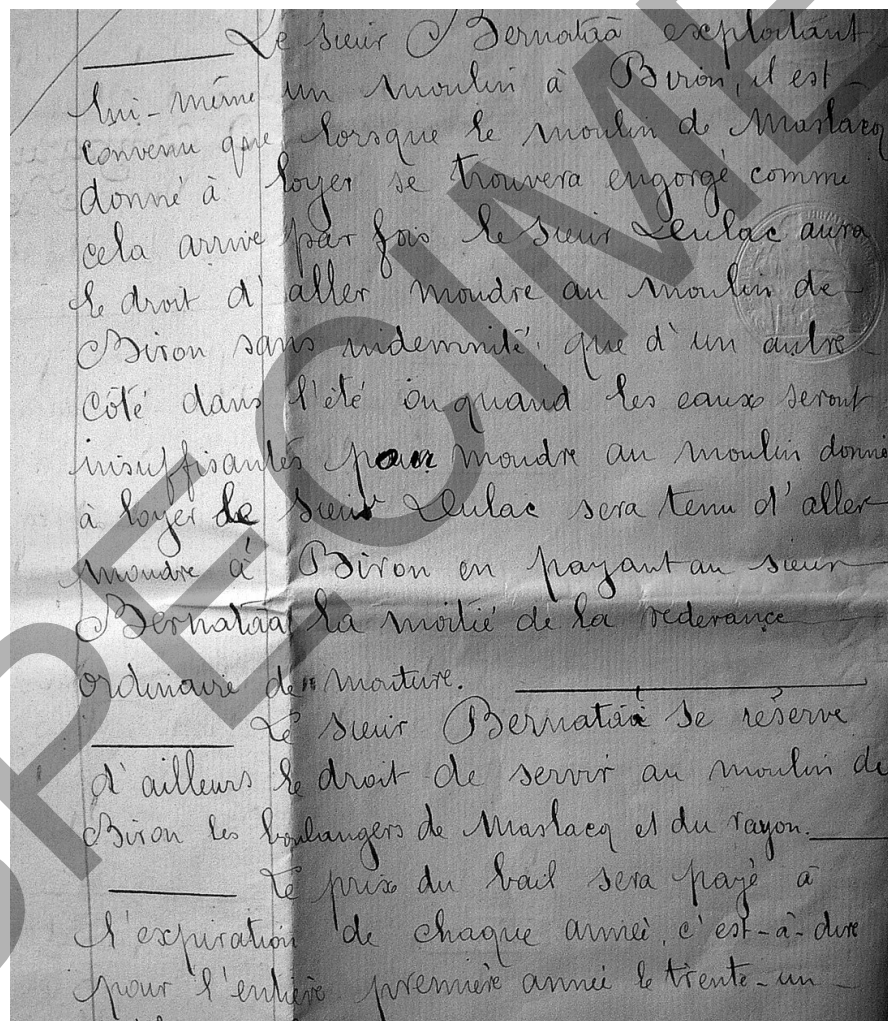 Le sieur Bernataà exploitant
lui-même un moulin à Biron, il est
convenu que, lorsque le moulin de Maslacq
donné à loyer se trouvera engorgé comme
cela arrive par fois le sieur Dulac aura
le droit d'aller moudre au moulin de
Biron sans indemnité; que d'un autre
côté dans l'été ou quand les eaux seront
insuffisantes pour moudre au moulin donné
à loyer le sieur Dulac sera tenu d'aller
moudre à Biron en payant au sieur
Bernataà la moitié de la rederance
ordinaire de mouture.
Le sieur Bernataà se réserve
d'ailleurs le droit de servir au moulin de
Biron les boulangers de Maslacq et du rayon.
Le prix du bail sera payé à
l'expiration de chaque année, c'est-à-dire
pour l'entière première année le trente-un
SPECIME